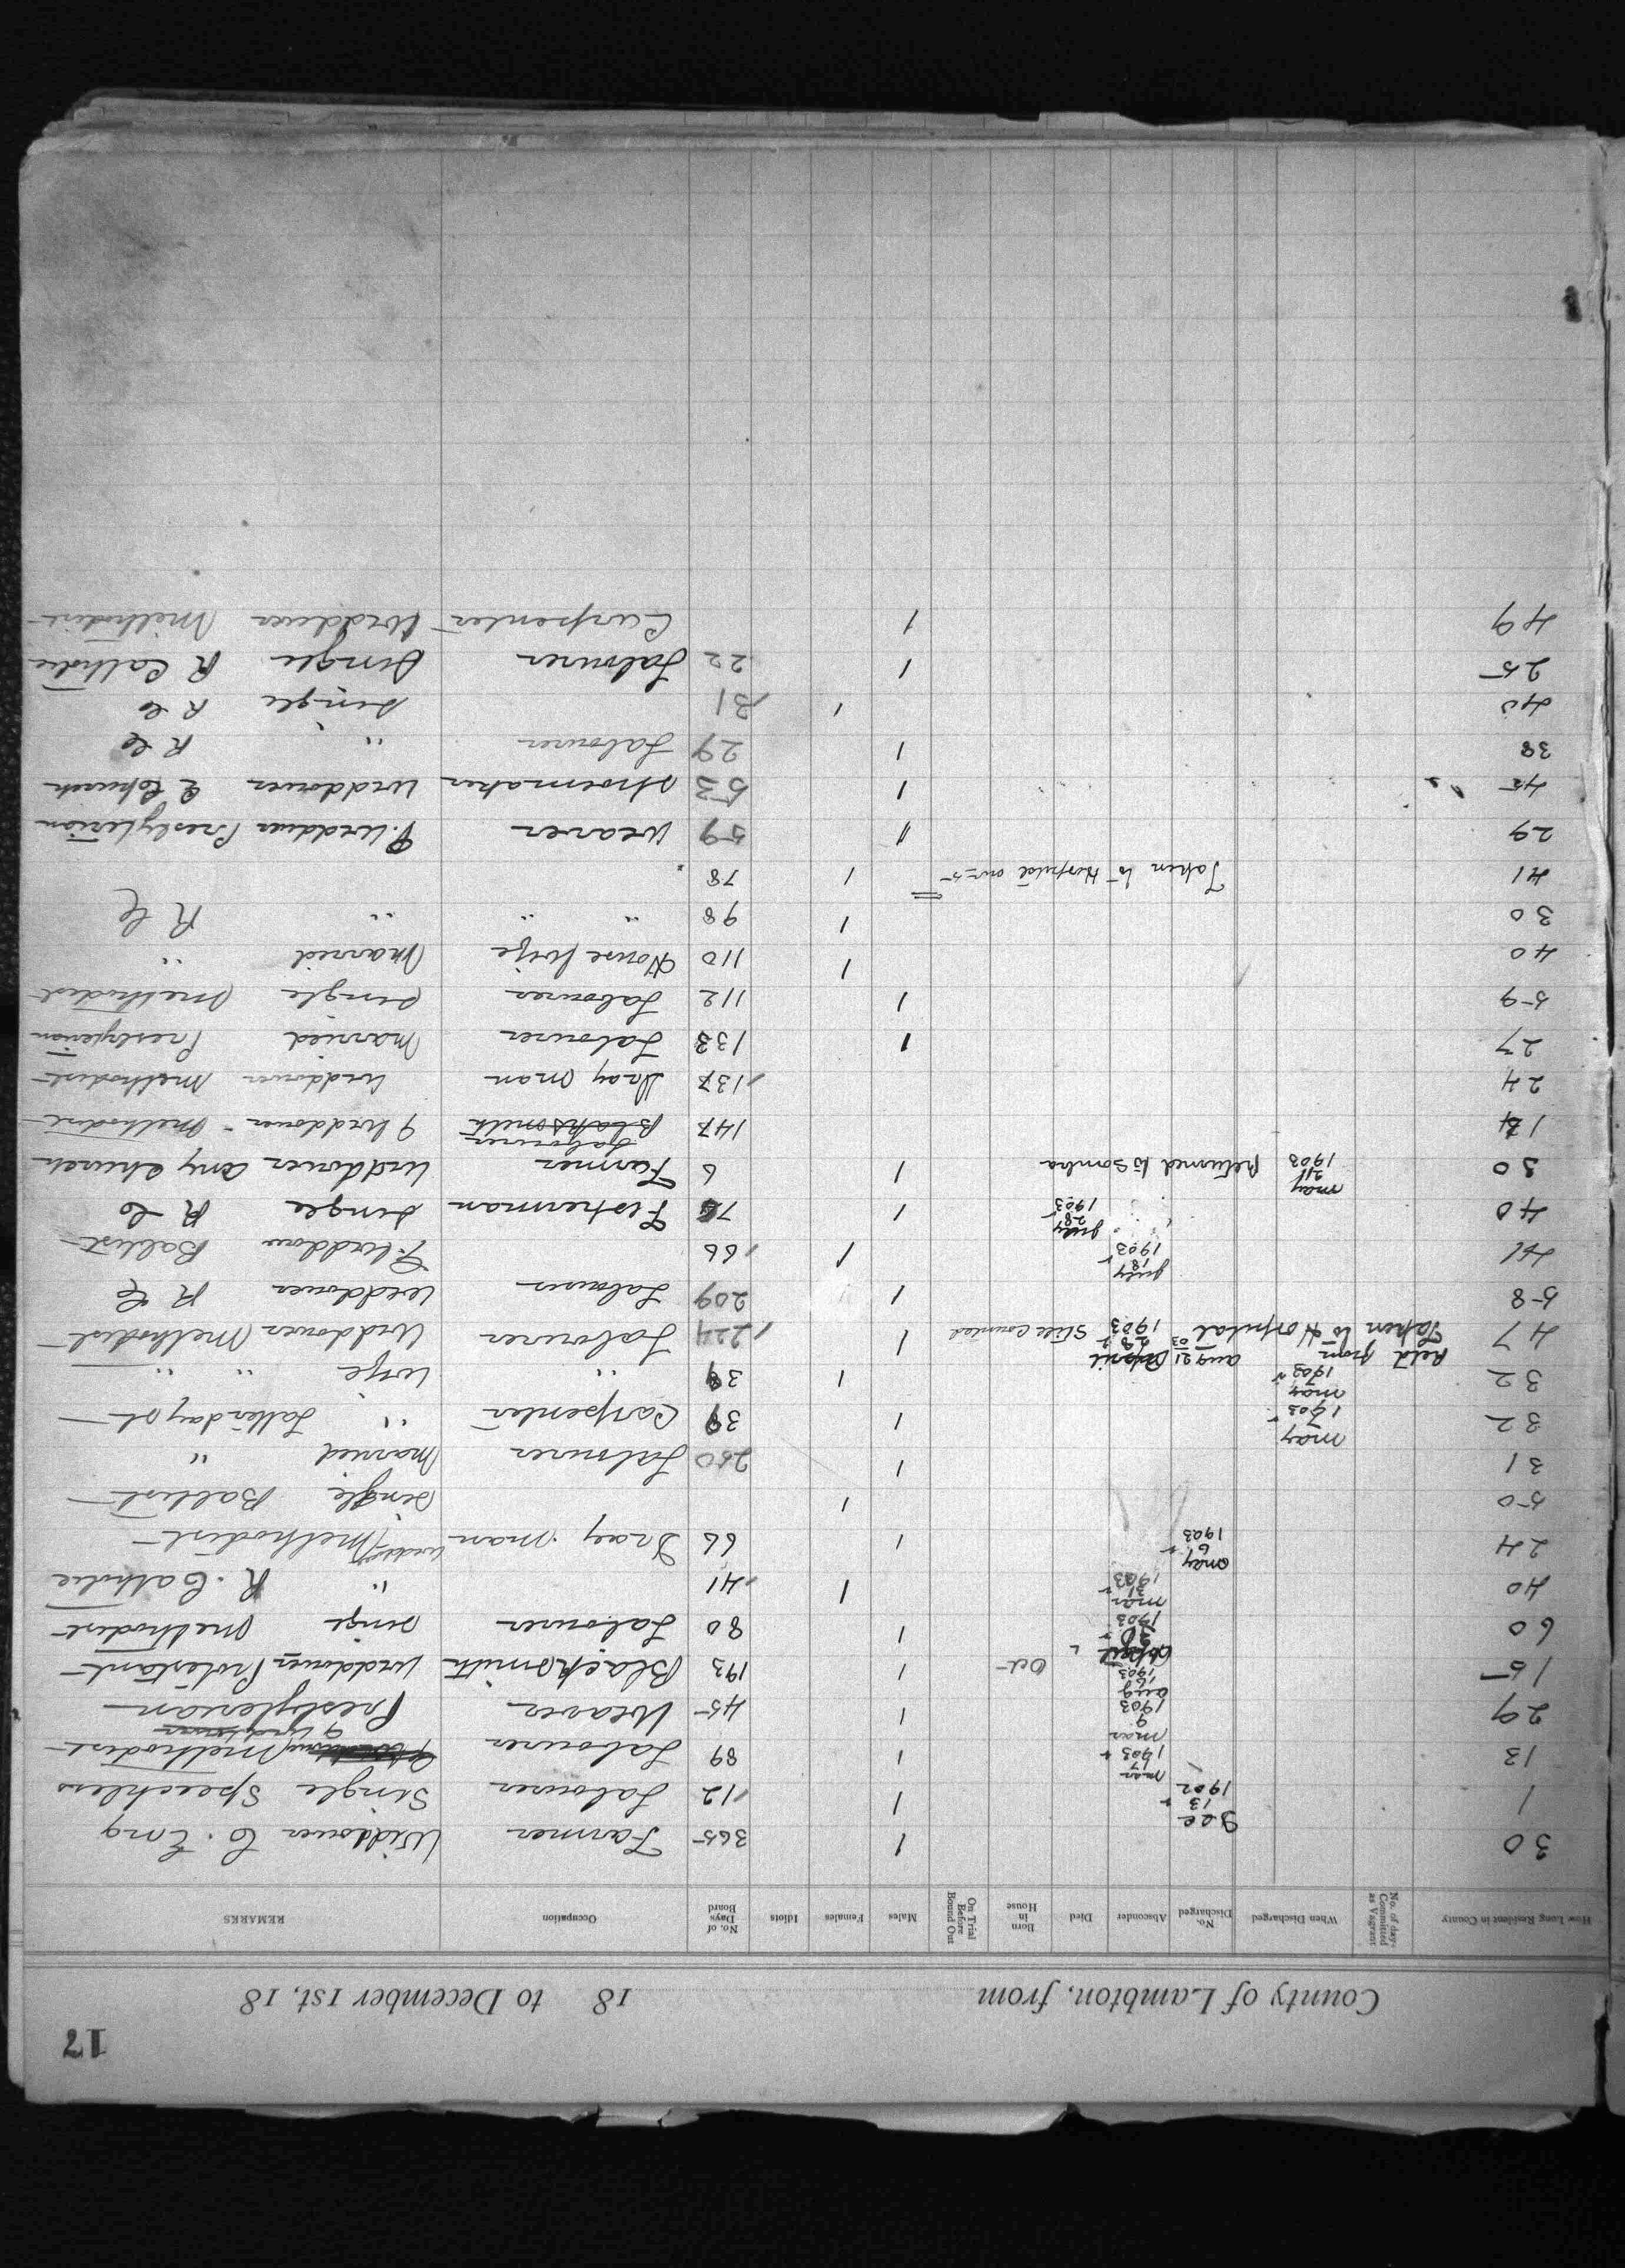 17
County of Lambton, from 18 to December 1st, 18
How Long Resident in County No. of days Committed as Vagrant When Discharged No. Discharged Absconder Died Born in House On Trial Before Bound Out Males Females Idiots No. of Days Board Occupation REMARKS
30 1 365 Farmer Widdower C. Eng
1 Dec 13 1902 1 112 Labourer Single Speechless
13 mar 17 1903 1 89 Labourer Widdower Methodist
29 mar 9 1903 1 45 Weaver Presbyterian
15 aug 16 1903 Oct 1 193 Blacksmith Widdower Protestant
60 April 1903 1 80 Labourer single Methodist
40 mar 31 1903 1 141 " R. Catholic
24 may 6 1903 1 66 Dray man Widdower Methodist
50 1 Single Babtist
31 1 250 Labourer Married "
32 may 7 1903 1 39 Carpenter " Latterday st
32 may 7 1903 1 39 " Wife
47 Held from Taken to Hospital aug 21 03 April 28 1903 Still Counted 1 224 Labourer Widdower Methodist
58 1 209 Labourer Widdower R C
41 July 18 1903 1 166 Widdow Babtist
40 July 28 1903 1 76 Fisherman single R C
30 may 21 1903 Returned to Sombra 1 6 Farmer Widdower Eng Church
14 147 Labourer Blacksmith Widdower Methodist
24 137 Dray man Widdower Methodist
27 1 133 Labourer Married Presbyterian
59 1 112 Labourer single Methodist
40 1 110 House Wife Married "
30 1 98 " " R C
41 Taken to Hospital 1 78
29 1 59 Weaver Widdower Presbyterian
45 1 53 Shoemaker Widdower E Church
38 1 29 Labourer " R C
40 1 31 single R C
25 1 22 Labourer Single R Catholic
49 1 Carpenter Widdower Methodist